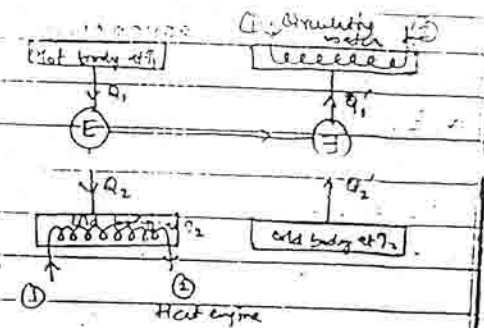 ① Circulating
water ②
Hot body at T₁
Q₁
Q₁'
E
Ǝ
Q₂
Q₂'
T₂
cold body at T₂
① ②
Heat engine